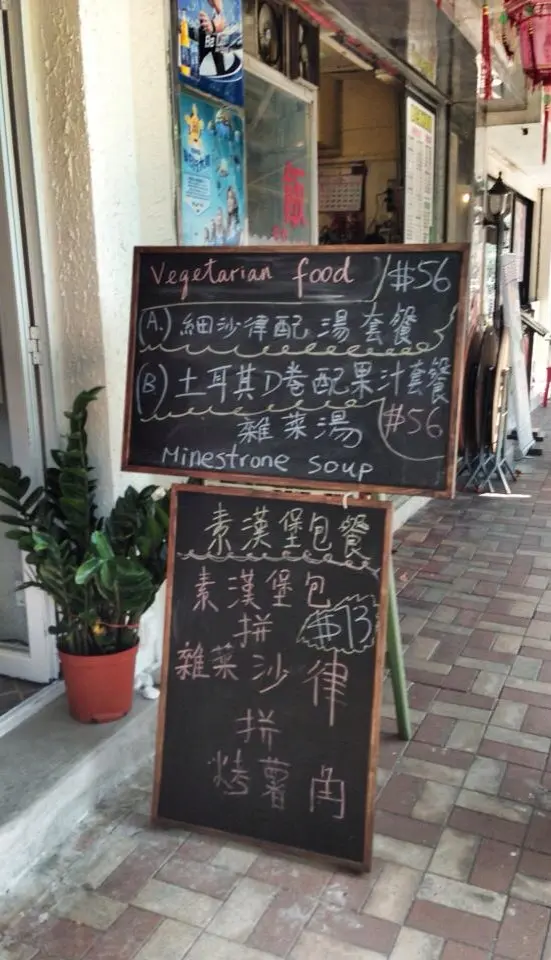 Vegetarian food $56
(A.) 細沙律配湯套餐
(B) 土耳其D卷配果汁套餐
雜菜湯 $56
Minestrone soup
素漢堡包餐
素漢堡包
拼 $73
雜菜沙律
拼
烤薯角